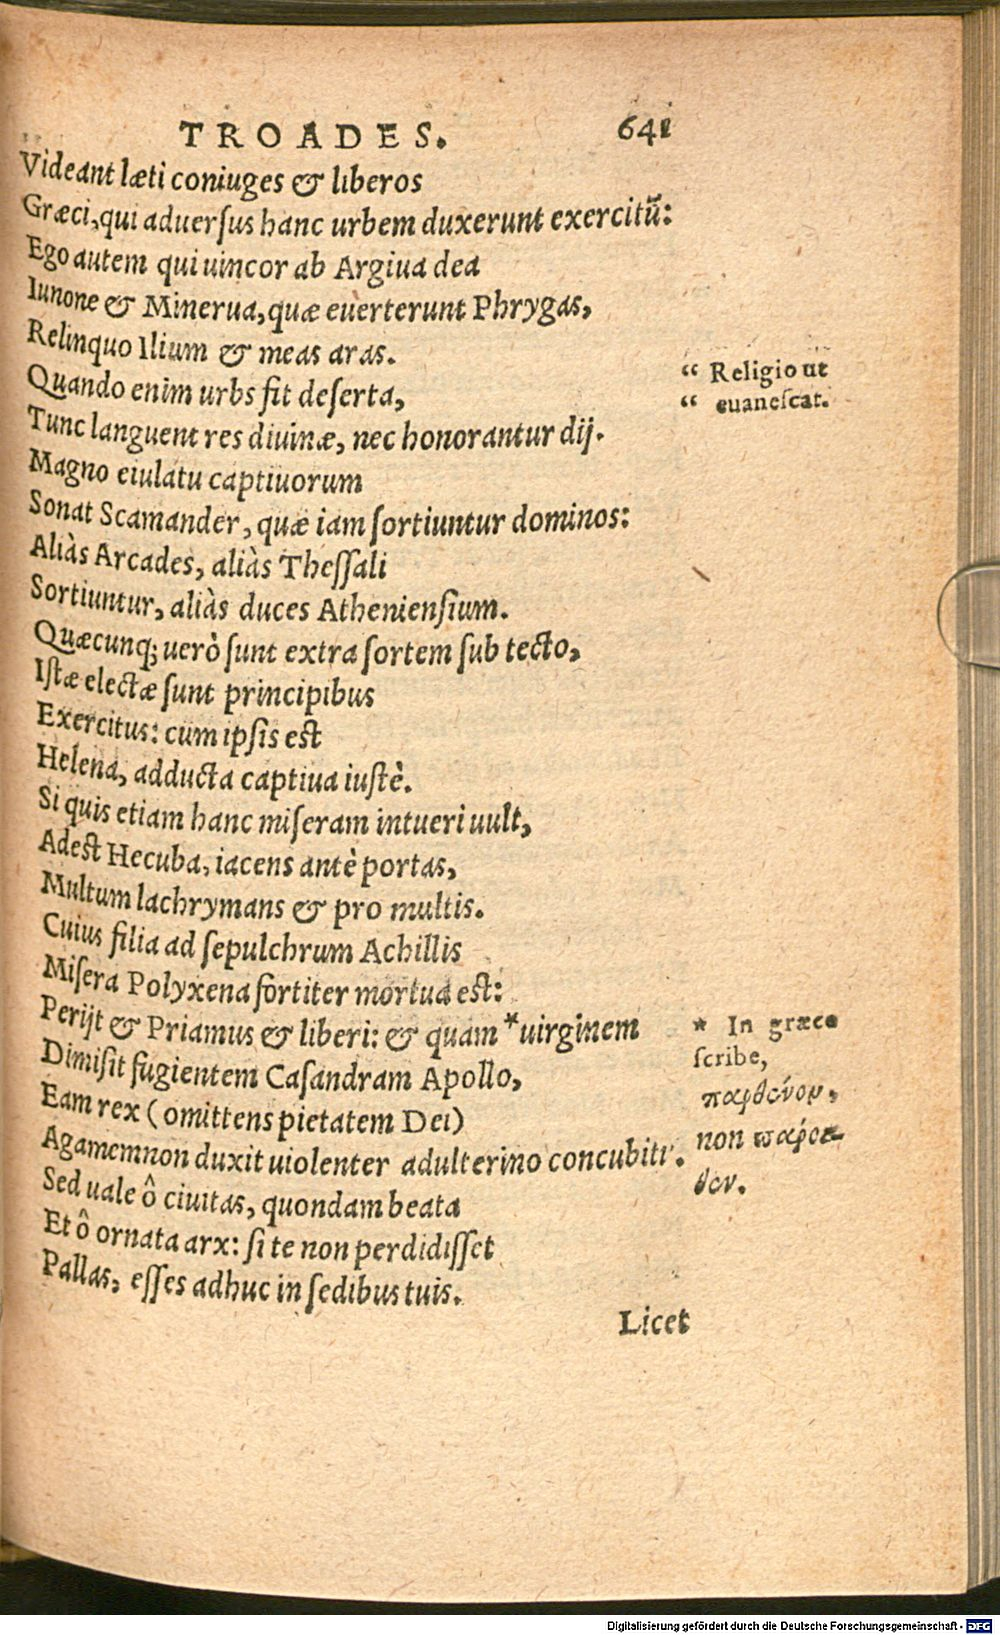 TROADES. 641
Videant læti coniuges & liberos
Græci, qui aduersus hanc urbem duxerunt exercitũ:
Ego autem qui uincor ab Argiua dea
Iunone & Minerua, quæ euerterunt Phrygas,
Relinquo Ilium & meas aras.
Quando enim urbs fit deserta,
Tunc languent res diuinæ, nec honorantur dij.
Magno eiulatu captiuorum
Sonat Scamander, quæ iam sortiuntur dominos:
Aliàs Arcades, aliàs Thessali
Sortiuntur, aliàs duces Atheniensium.
Quæcunq; uerò sunt extra sortem sub tecto,
Istæ electæ sunt principibus
Exercitus: cum ipsis est
Helena, adducta captiua iustè.
Si quis etiam hanc miseram intueri uult,
Adest Hecuba, iacens antè portas,
Multum lachrymans & pro multis.
Cuius filia ad sepulchrum Achillis
Misera Polyxena fortiter mortua est:
Perijt & Priamus & liberi: & quam *uirginem
Dimisit fugientem Casandram Apollo,
Eam rex (omittens pietatem Dei)
Agamemnon duxit uiolenter adulterino concubitu.
Sed uale ô ciuitas, quondam beata
Et ô ornata arx: si te non perdidisset
Pallas, esses adhuc in sedibus tuis.
Licet
“ Religio ut
“ euanescat.
* In græco
scribe,
παρθένον,
non πάρε-
θεν.
Digitalisierung gefördert durch die Deutsche Forschungsgemeinschaft - DFG